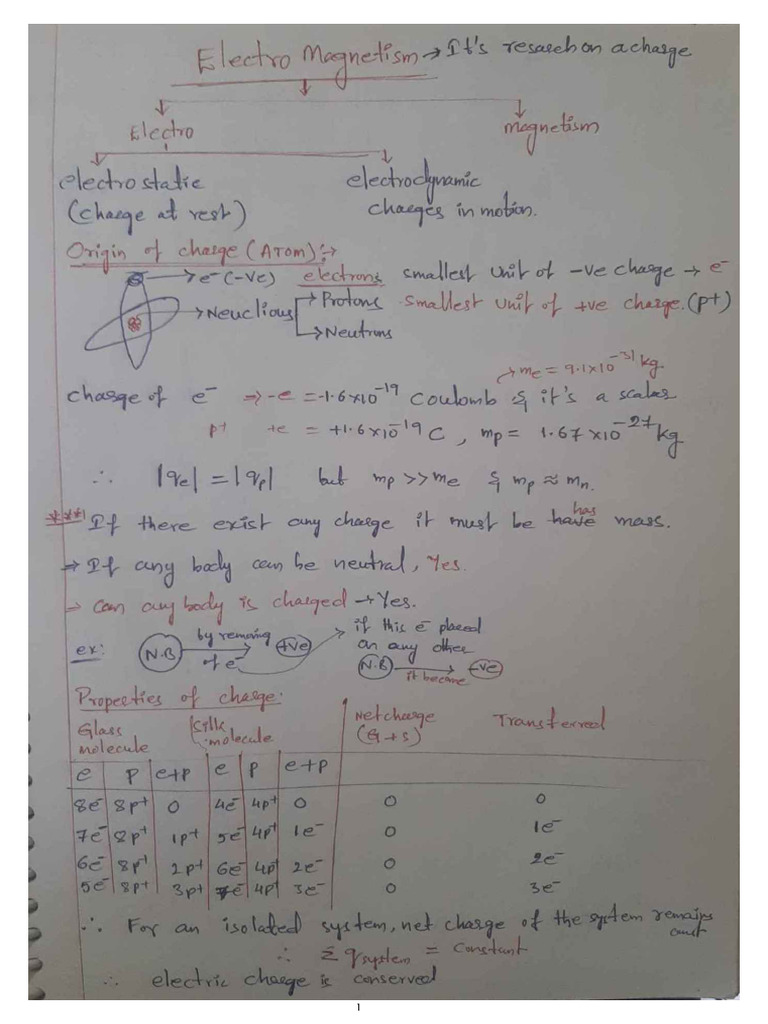 Electro Magnetism → It's resarch on a charge
Electro magnetism
electrostatic electrodynamic
(charge at rest) charges in motion.
Origin of charge (Atom) :→
→ e⁻ (-ve) electrons smallest unit of -ve charge → e⁻
→ Neuclious → Protons smallest unit of +ve charge. (p+)
→ Neutrons
→ me = 9.1×10⁻³¹ kg
charge of e⁻ ⇒ -e = -1.6×10⁻¹⁹ Coulomb & it's a scalar
p+ +e = +1.6×10⁻¹⁹ C, mp = 1.67×10⁻²⁷ kg
∴ |qe| = |qp| but mp >> me & mp ≈ mn.
*** If there exist any charge it must be have has mass.
→ If any body can be neutral, Yes.
→ can any body is charged → Yes.
ex: N.B by removing of e⁻ +ve → if this e⁻ placed
on any other
N.B it became -ve
Properties of charge:
Glass molecule Silk molecule Net charge (G+S) Transferred
e p e+p e p e+p
8e⁻ 8p+ 0 4e⁻ 4p+ 0 0 0
7e⁻ 8p+ 1p+ 5e⁻ 4p+ 1e⁻ 0 1e⁻
6e⁻ 8p+ 2p+ 6e⁻ 4p+ 2e⁻ 0 2e⁻
5e⁻ 8p+ 3p+ 7e⁻ 4p+ 3e⁻ 0 3e⁻
∴ For an isolated system, net charge of the system remains const
∴ Σ qsystem = constant
∴ electric charge is conserved
1